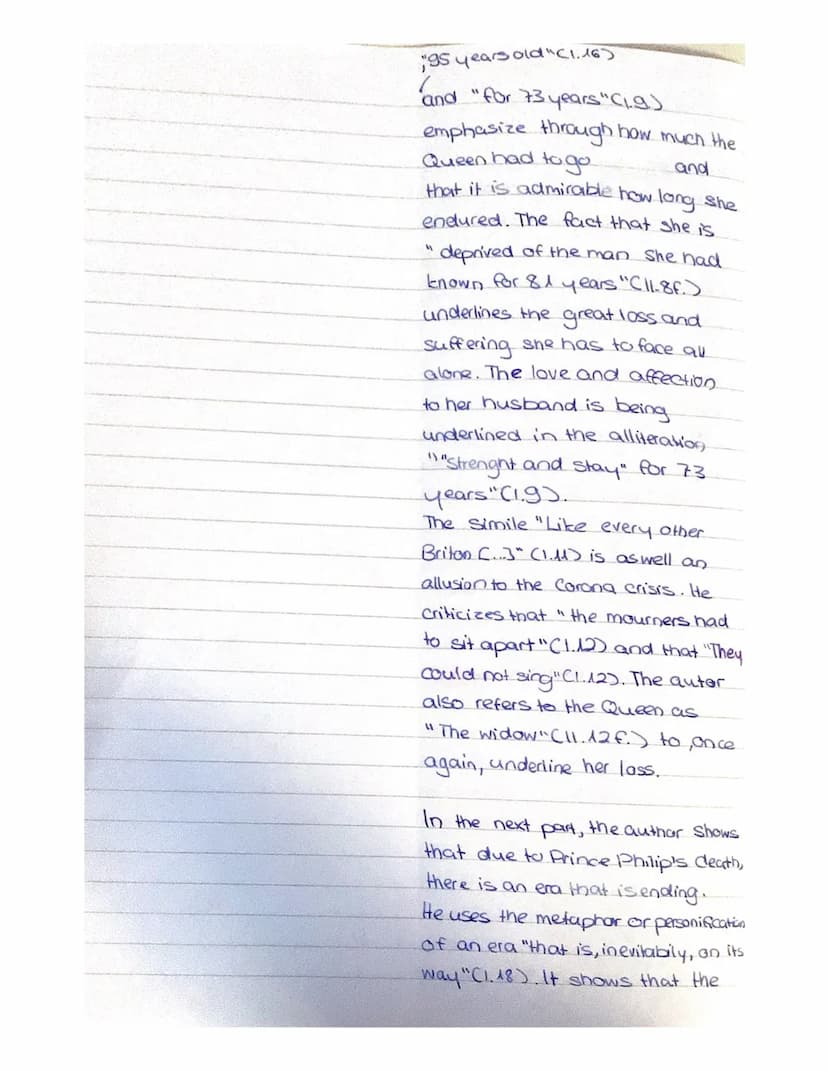 ;"95 years old"(l.16)
and "for 73 years"(l.9)
emphasize through how much the
Queen had to go and
that it is admirable how long she
endured. The fact that she is
"deprived of the man she had
known for 81 years"(ll.8f.)
underlines the great loss and
suffering she has to face all
alone. The love and affection
to her husband is being
underlined in the alliteration
""strenght and stay" for 73
years"(l.9).
The simile "Like every other
Briton [...]" (l.11) is aswell an
allusion to the Corona crisis. He
criticizes that "the mourners had
to sit apart"(l.12) and that "They
could not sing"(l.12). The autor
also refers to the Queen as
"The widow"(ll.12f.) to, once
again, underline her loss.
In the next part, the author shows
that due to Prince Philip's death,
there is an era that is ending.
He uses the metaphor or personification
of an era "that is, inevitably, on its
way"(l.18). It shows that the